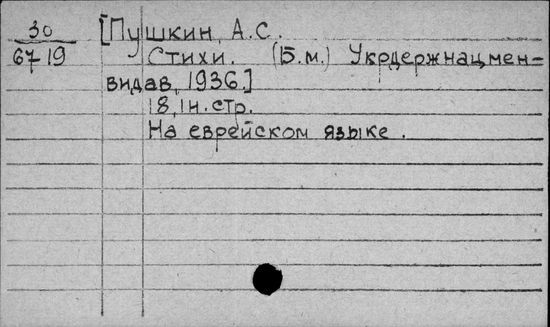 30 [Пушкин, А.С.
67-19 Стихи. (Б.м.) Укрдержнацмен-
видав, 1936.]
18, 1 н. стр.
На еврейском языке.